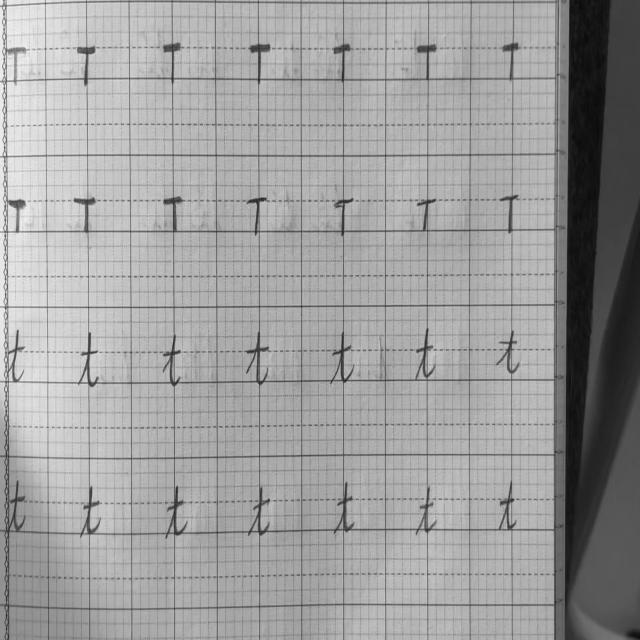 T T T T T T T
T T T T T T T
t t t t t t t
t t t t t t t